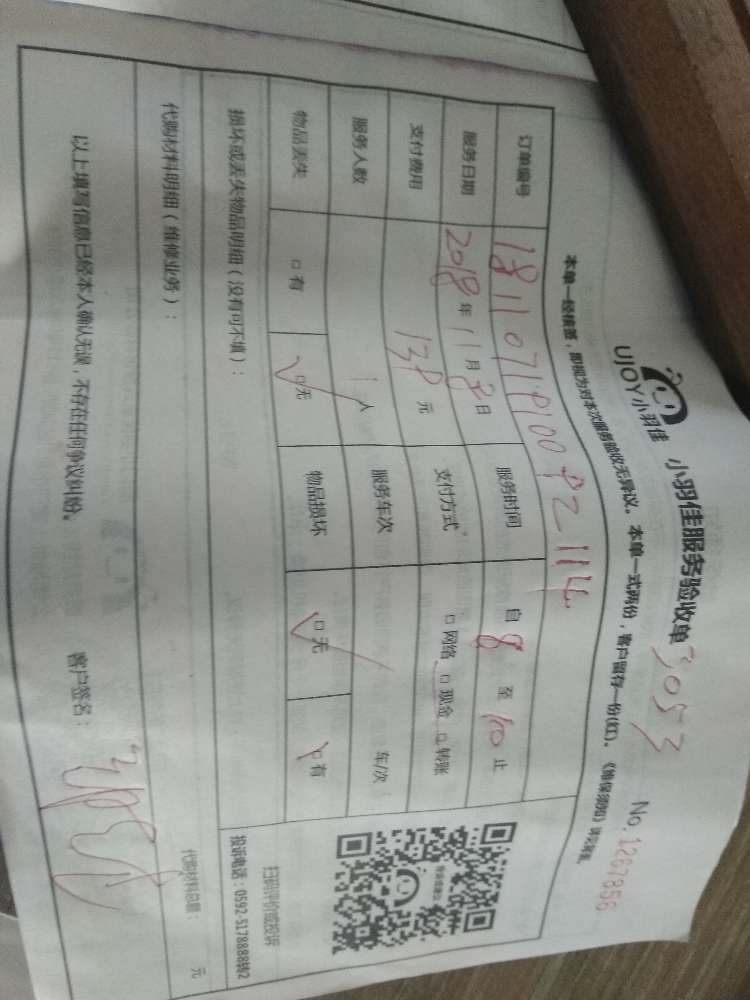 UJOY小羽佳 小羽佳服务验收单 3053 No. 1267856
本单一经核签，即视为对本次服务验收无异议。本单一式两份，客户留存一份(红)。《维保须知》详见背面。
订单编号
服务日期 2018年11月8日 服务时间 自8至10止
支付费用 138元 支付方式 □网络 □现金 □转账
服务人数 1人 服务车次 车/次
物品丢失 □有 □无 物品损坏 □无 □有
扫码评价或投诉
投诉电话：0592-5178888转2
损坏或丢失物品明细（没有可不填）：
代购材料明细（维修业务）：
代购材料总额： 元
以上填写信息已经本人确认无误，不存在任何争议纠纷。 客户签名：